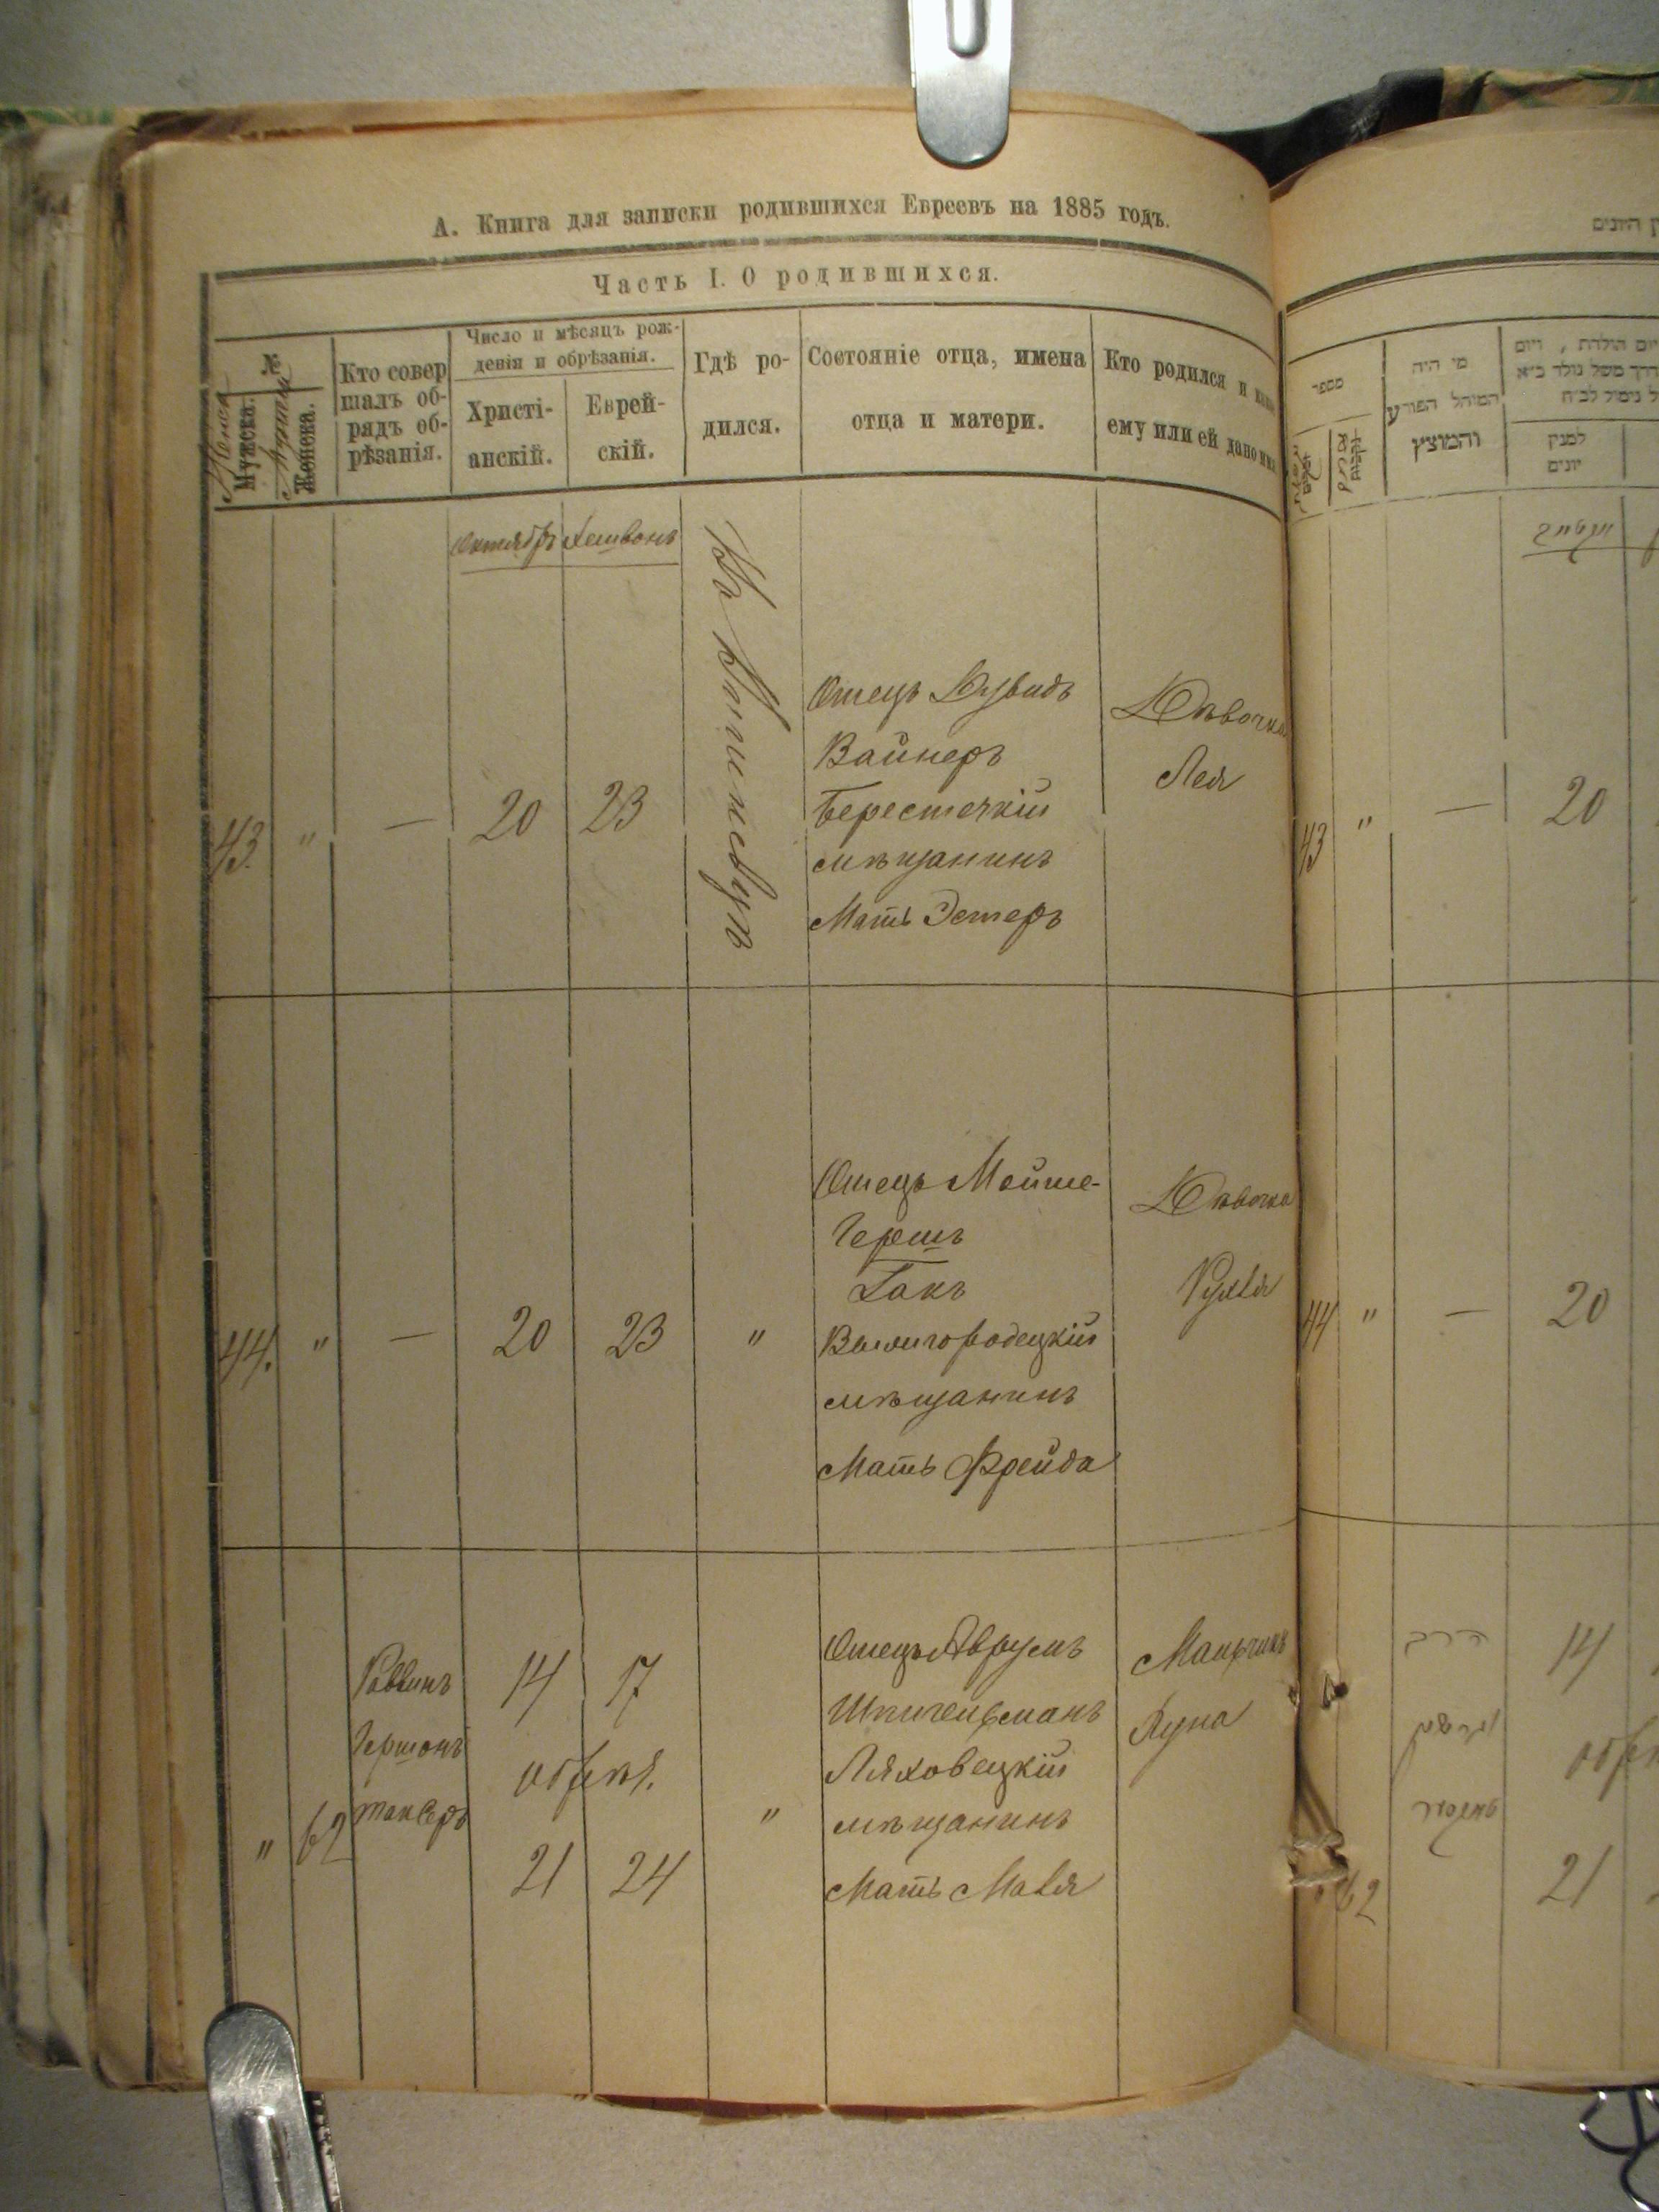 А. Книга для записки родившихся Евреевъ на 1885 годъ.
Часть I. О родившихся.
№
Мужска.
Женска.
Кто совер
шалъ об-
рядъ об-
рѣзанія.
Число и мѣсяцъ рож-
денія и обрѣзанія.
Христі-
анскій.
Еврей-
скій.
Гдѣ ро-
дился.
Состояніе отца, имена
отца и матери.
Кто родился и
ему или ей дано
Октябрь Хешвонъ
43.
"
—
20
23
Отецъ Дувидъ
Вайнеръ
Берестечкій
мѣщанинъ
Мать Эстеръ
Дѣвочка
Лея
44.
"
—
20
23
"
Отецъ Мойше-
Гершъ
Гакъ
мѣщанинъ
Мать Фрейда
Дѣвочка
"
62
Раввинъ
Гершонъ
14
17
обрѣз.
21
24
"
Отецъ Аврумъ
Шпигельманъ
Ляховецкій
мѣщанинъ
Мать
Мальчикъ
מספר
מי היה
המוהל הפורע
והמוצץ
יום הולדת, ויום
למנין
יונים
43
"
—
20
44
"
—
20
62
הרב
14
21